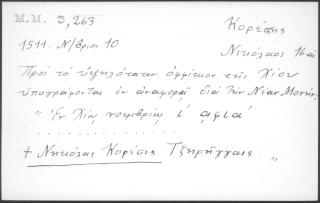 Μ.Μ. 3,263
Κορέσης
1511. Ν/βριου 10
Νικόλαος 16 αἰ
Πρὸς τὸ ὑψηλότατον ὀφφίκιον τῆς Χίου
ὑπογράφονται ἐν ἀναφορᾷ διὰ τὴν Νέαν Μονήν:
" Ἐν Χίῳ νοεμβρίῳ ί αφια΄
. . . . . . . . . . . . . . . .
+ Νηκόλας Κορέσις Τζηρήγγας . „